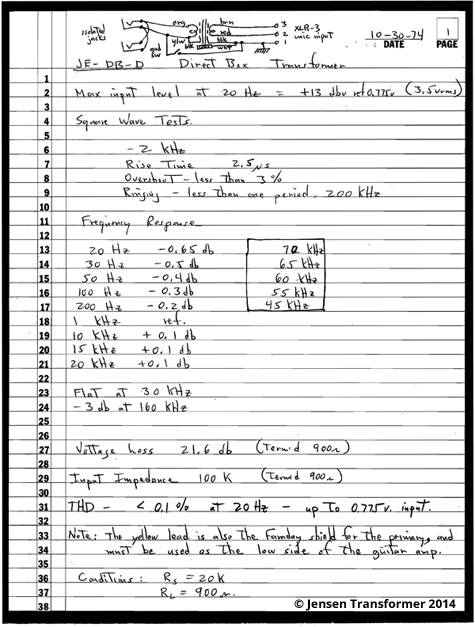 isolated jacks
org
brn
3 XLR-3
yel
red
2 mic input
blk
wht
1
gnd sw
10-30-74
DATE
1
PAGE
JE-DB-D Direct Box Transformer
1
2 Max input level at 20 Hz = +13 dbv ref 0.775v (3.5vrms)
3
4 Square Wave Tests.
5
6 -2 kHz
7 Rise Time 2.5µs
8 Overshoot - less than 3%
9 Ringing - less than one period, 200 kHz
10
11 Frequency Response
12
13 20 Hz -0.65 db 70 kHz
14 30 Hz -0.5 db 65 kHz
15 50 Hz -0.4 db 60 kHz
16 100 Hz -0.3 db 55 kHz
17 200 Hz -0.2 db 45 kHz
18 1 kHz ref.
19 10 kHz +0.1 db
20 15 kHz +0.1 db
21 20 kHz +0.1 db
22
23 Flat at 30 kHz
24 -3 db at 160 kHz
25
26
27 Voltage Loss 21.6 db (Term'd 900Ω)
28
29 Input Impedance 100 K (Term'd 900Ω)
30
31 THD - < 0.1% at 20 Hz - up to 0.775v. input.
32
33 Note: The yellow lead is also the Faraday shield for the primary, and
34 must be used as the low side of the guitar amp.
35
36 Conditions: Rs = 20K
37 RL = 900Ω.
38
© Jensen Transformer 2014